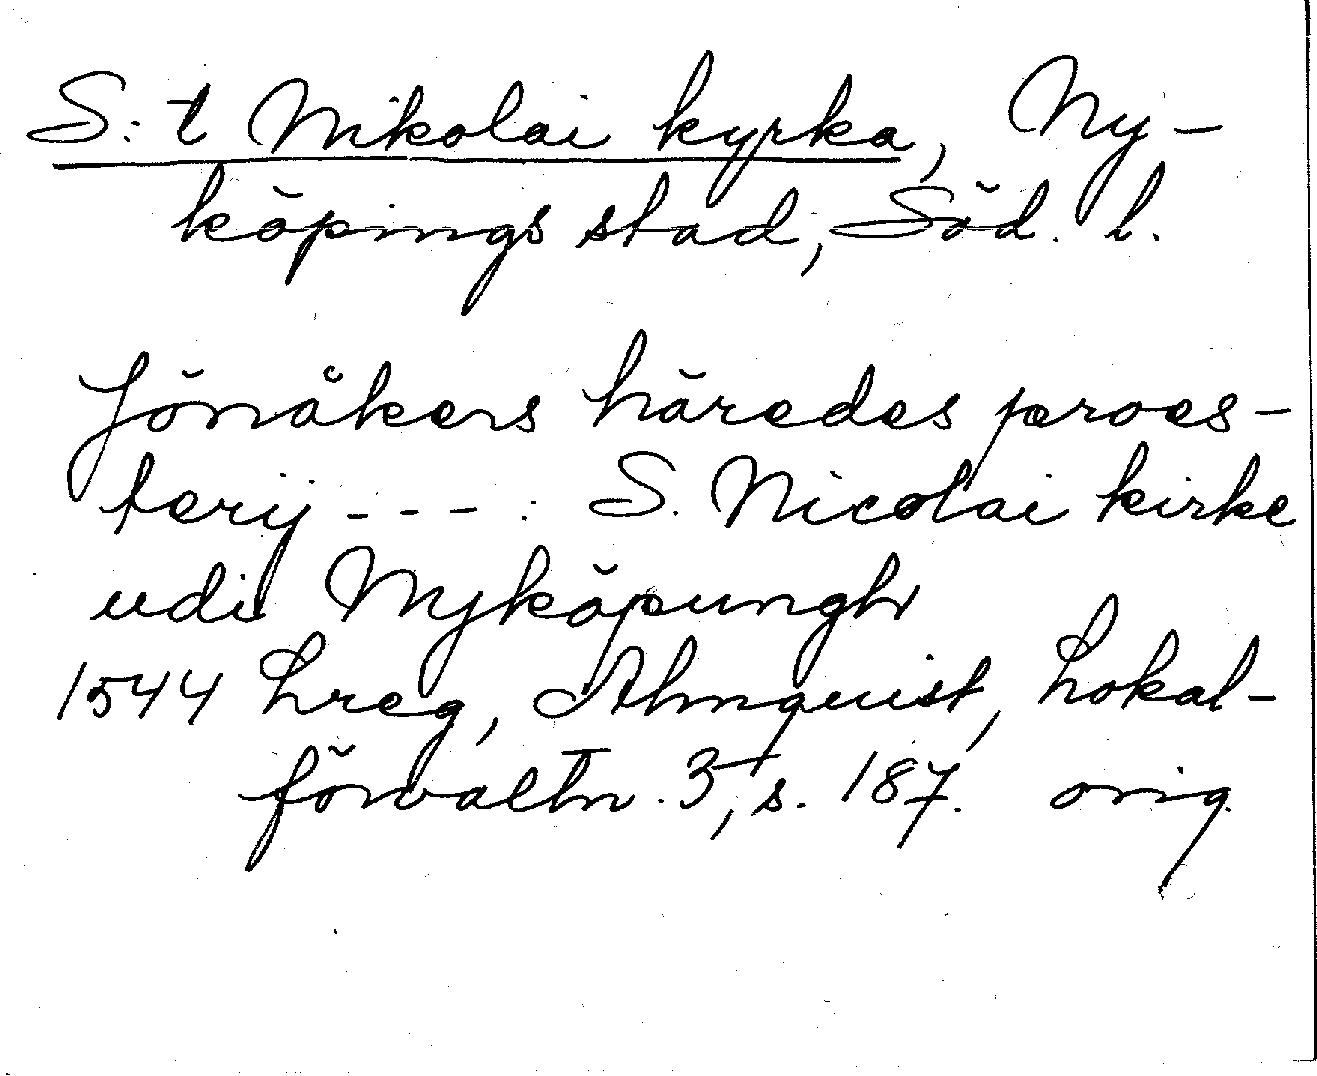 S:t Nikolai kyrka, Ny-
köpings stad, Söd. l.
Jönåkers häredes proes-
terij - - - : S. Nicolai kirke
udi Nyköpungh
1544 Lreg, Almquist, Lokal-
förvaltn. 3, s. 187. orig.